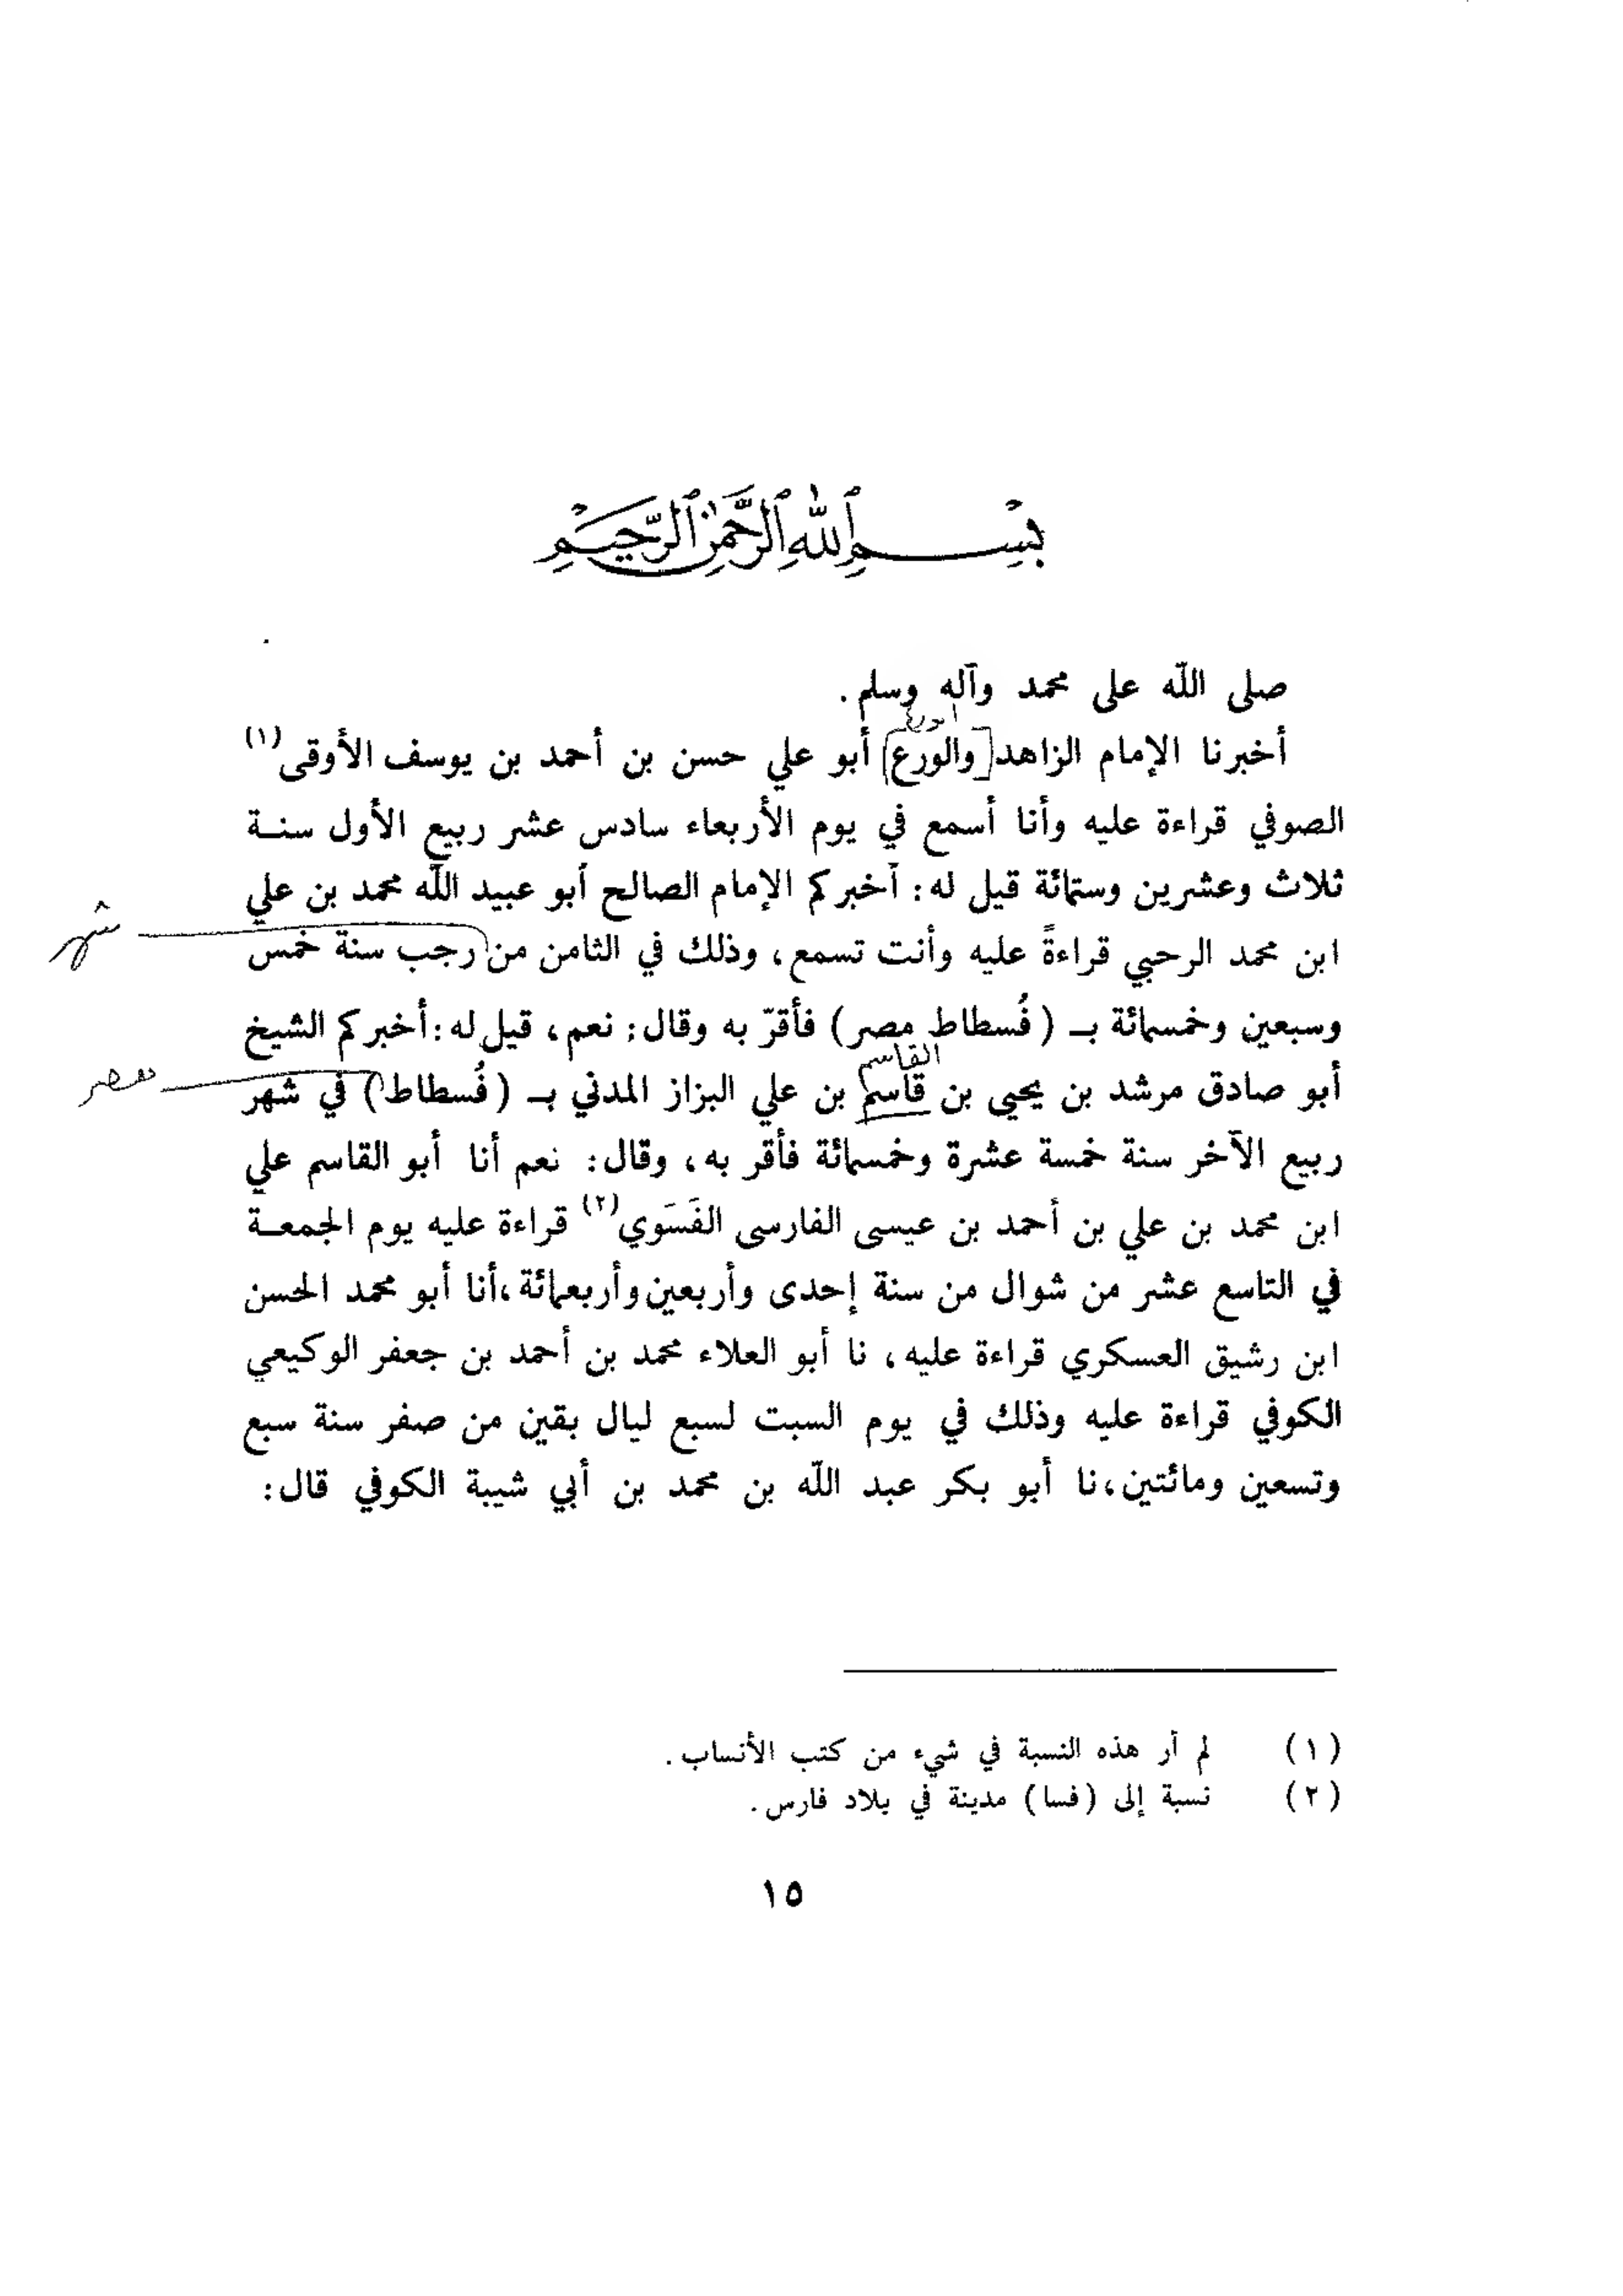 بسم الله الرحمن الرحيم
صلى الله على محمد وآله وسلم.
الورع
أخبرنا الإمام الزاهد [والورع] أبو علي حسن بن أحمد بن يوسف الأوقى (١)
الصوفي قراءة عليه وأنا أسمع في يوم الأربعاء سادس عشر ربيع الأول سنة
ثلاث وعشرين وستمائة قيل له: أخبركم الإمام الصالح أبو عبيد الله محمد بن علي
ابن محمد الرحبي قراءةً عليه وأنت تسمع، وذلك في الثامن من رجب سنة خمس
شهر
وسبعين وخمسمائة بـ (فُسطاط مصر) فأقرّ به وقال: نعم، قيل له: أخبركم الشيخ
القاسم
أبو صادق مرشد بن يحيى بن قاسم بن علي البزاز المدني بـ (فُسطاط) في شهر
مصر
ربيع الآخر سنة خمسة عشرة وخمسمائة فأقر به، وقال: نعم أنا أبو القاسم علي
ابن محمد بن علي بن أحمد بن عيسى الفارسى الفَسَوي (٢) قراءة عليه يوم الجمعة
في التاسع عشر من شوال من سنة إحدى وأربعين وأربعمائة، أنا أبو محمد الحسن
ابن رشيق العسكري قراءة عليه، نا أبو العلاء محمد بن أحمد بن جعفر الوكيعي
الكوفي قراءة عليه وذلك في يوم السبت لسبع ليال بقين من صفر سنة سبع
وتسعين ومائتين، نا أبو بكر عبد الله بن محمد بن أبي شيبة الكوفي قال:
(١) لم أر هذه النسبة في شيء من كتب الأنساب.
(٢) نسبة إلى (فسا) مدينة في بلاد فارس.
١٥